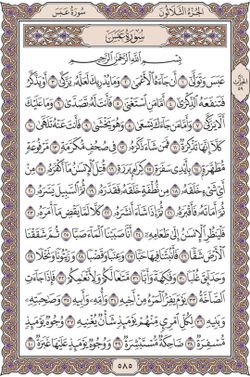 الجزء الثلاثون
سورة عبس
سورة عبس
بسم الله الرحمن الرحيم
عبس وتولى ١ أن جاءه الأعمى ٢ وما يدريك لعله يزكى ٣ أو يذكر
فتنفعه الذكرى ٤ أما من استغنى ٥ فأنت له تصدى ٦ وما عليك
ألا يزكى ٧ وأما من جاءك يسعى ٨ وهو يخشى ٩ فأنت عنه تلهى ١٠
كلا إنها تذكرة ١١ فمن شاء ذكره ١٢ في صحف مكرمة ١٣ مرفوعة
مطهرة ١٤ بأيدي سفرة ١٥ كرام بررة ١٦ قتل الإنسان ما أكفره ١٧ من
أي شيء خلقه ١٨ من نطفة خلقه فقدره ١٩ ثم السبيل يسره ٢٠
ثم أماته فأقبره ٢١ ثم إذا شاء أنشره ٢٢ كلا لما يقض ما أمره ٢٣
فلينظر الإنسان إلى طعامه ٢٤ أنا صببنا الماء صبا ٢٥ ثم شققنا
الأرض شقا ٢٦ فأنبتنا فيها حبا ٢٧ وعنبا وقضبا ٢٨ وزيتونا ونخلا ٢٩
وحدائق غلبا ٣٠ وفاكهة وأبا ٣١ متاعا لكم ولأنعامكم ٣٢ فإذا جاءت
الصاخة ٣٣ يوم يفر المرء من أخيه ٣٤ وأمه وأبيه ٣٥ وصاحبته
وبنيه ٣٦ لكل امرئ منهم يومئذ شأن يغنيه ٣٧ وجوه يومئذ
مسفرة ٣٨ ضاحكة مستبشرة ٣٩ ووجوه يومئذ عليها غبرة ٤٠
٥٨٥